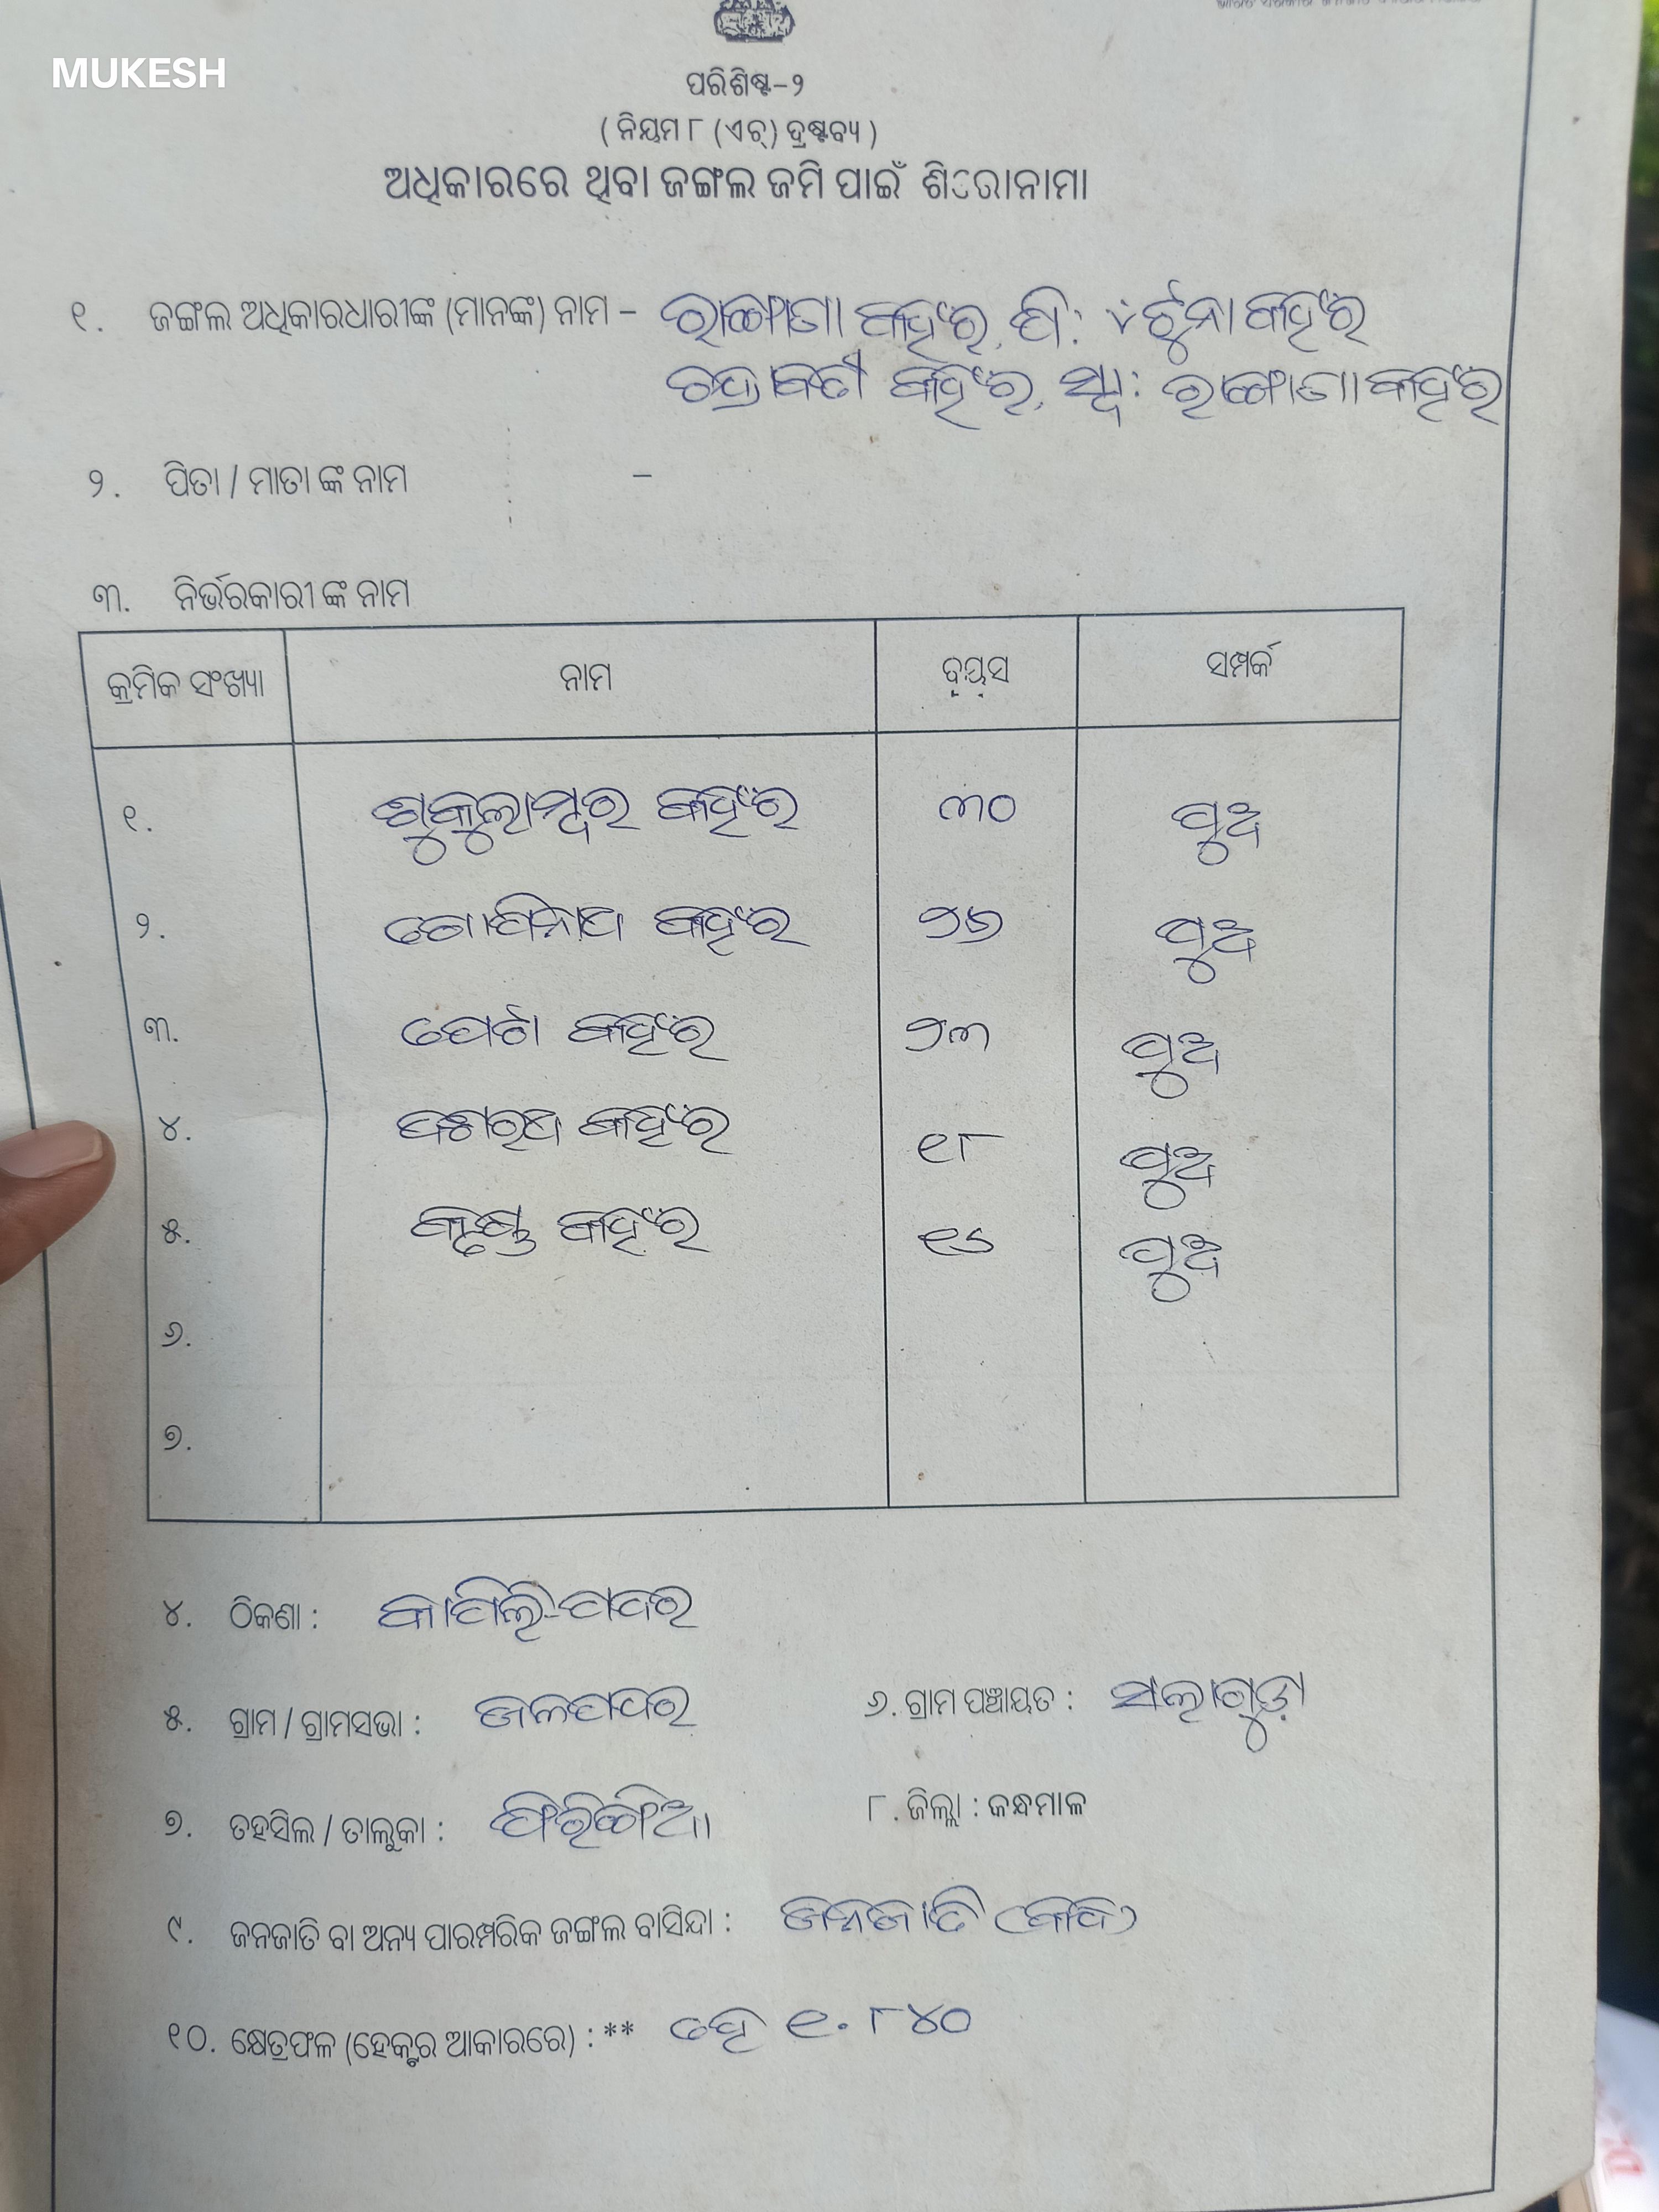 MUKESH
ପରିଶିଷ୍ଟ-୨
( ନିୟମ ୮ (ଏଚ୍) ଦ୍ରଷ୍ଟବ୍ୟ )
ଅଧିକାରରେ ଥିବା ଜଙ୍ଗଲ ଜମି ପାଇଁ ଶିରୋନାମା
୧. ଜଙ୍ଗଲ ଅଧିକାରଧାରୀଙ୍କ (ମାନଙ୍କ) ନାମ – କହଁର, ପି: ଟୁନା କହଁର
କହଁର, ସ୍ୱା: କହଁର
୨. ପିତା / ମାତା ଙ୍କ ନାମ –
୩. ନିର୍ଭରକାରୀ ଙ୍କ ନାମ
କ୍ରମିକ ସଂଖ୍ୟା ନାମ ବୟସ ସମ୍ପର୍କ
୧. ଶୁକୁଲାମ୍ବର କହଁର ୩୦ ପୁଅ
୨. ଗୋପିନାଥ କହଁର ୨୬ ପୁଅ
୩. କହଁର ୨୩ ପୁଅ
୪. ଦଶରଥ କହଁର ୧୮ ପୁଅ
୫. କୃଷ୍ଣ କହଁର ୧୬ ପୁଅ
୬.
୭.
୪. ଠିକଣା : କାପିଲି-ପଦର
୫. ଗ୍ରାମ / ଗ୍ରାମସଭା : ଜଳପଦର ୬. ଗ୍ରାମ ପଞ୍ଚାୟତ : ସଲାଗୁଡ଼ା
୭. ତହସିଲ / ତାଲୁକା : ଫିରିଙ୍ଗିଆ ୮. ଜିଲ୍ଲା : କନ୍ଧମାଳ
୯. ଜନଜାତି ବା ଅନ୍ୟ ପାରମ୍ପରିକ ଜଙ୍ଗଲ ବାସିନ୍ଦା : ଜନଜାତି (କନ୍ଧ)
୧୦. କ୍ଷେତ୍ରଫଳ (ହେକ୍ଟର ଆକାରରେ) : ** ହେ ୧.୮୪୦